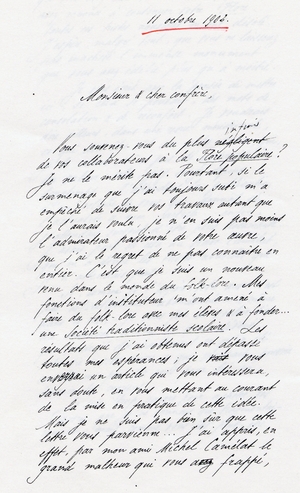 11 octobre 1902.
Monsieur & cher confrère,
infime
Vous souvenez-vous du plus négligent
de vos collaborateurs à la Flore populaire ?
Je ne le mérite pas. Pourtant, si le
surmenage que j'ai toujours subi m'a
empêché de suivre vos travaux autant que
je l'aurais voulu, je n'en suis pas moins
l'admirateur passionné de votre œuvre,
que j'ai le regret de ne pas connaître en
entier. C'est que je suis un nouveau
venu dans le monde du folk-lore. Mes
fonctions d'instituteur m'ont amené à
faire du folk-lore avec mes élèves & à fonder...
une Société traditionniste scolaire. Les
résultats que j'ai obtenus ont dépassé
toutes mes espérances ; je vous
enverrai un article qui vous intéressera,
sans doute, en vous mettant au courant
de la mise en pratique de cette idée.
Mais je ne suis pas bien sûr que cette
lettre vous parvienne... J'ai appris, en
effet, par mon ami Michel Camélat le
grand malheur qui vous frappé,